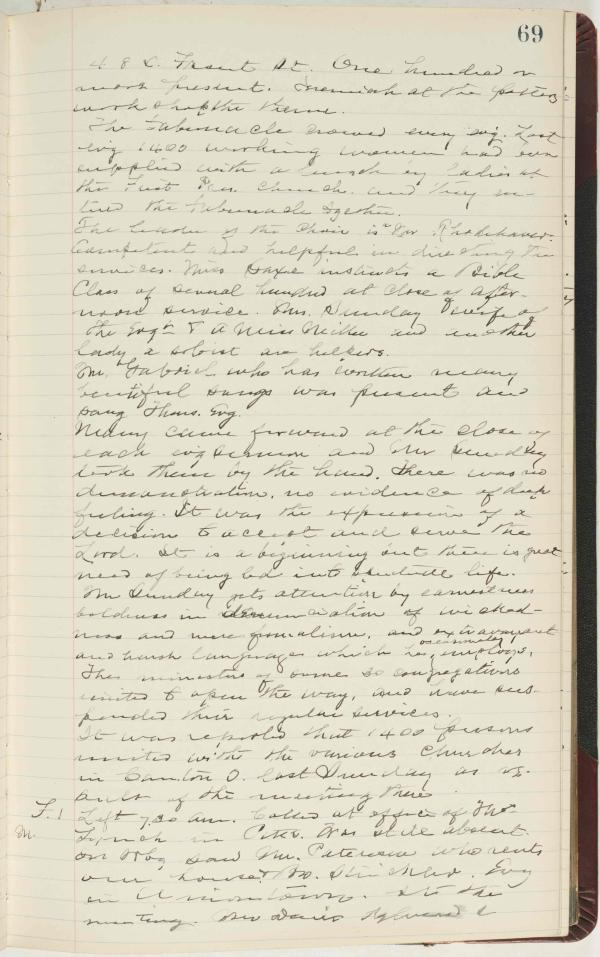 69
4 8 L. Front St. One hundred or
more present. Jeremiah at the potters
work shop the theme.
The Tabernacle crowed every evg. Last
evg 1400 working women had been
supplied with a lunch by ladies at
the First Pres. Church. and they en-
tered the Tabernacle together.
The leader of the Choir is Mr. Rhodeheaver.
Competent and helpful in directing the
services. Miss Saxe instructs a Bible
Class of several hundred at close of after-
noon service. Mrs. Sunday wife of
the Evgn & A Miss Miller and another
lady a soloist are helpers.
Mr. Gabriel who has written many
beautiful songs was present and
sang Thurs. Evg.
Many came forward at the close of
each evg sermon and Mr Sunday
took them by the hand. There was no
demonstration, no evidence of deep
feeling. It was the expression of a
decision to accept and serve the
Lord. It is a beginning but there is great
need of being led into life.
Mr Sunday gets attention by earnestness
boldness in denunciation of wicked-
ness and mere formalism, and extravagant
and harsh language which he occasionally employs.
The ministers of some 30 congregations
united to open the way, and have sus-
pended their regular services.
It was reported that 1400 persons
united with the various churches
in Canton O. last Sunday as re-
sult of the meeting there.
F. 1 Left 7.30 am. Called at office of
M. Lynch in Pitts. Was still absent.
on way saw Mr. Peterson who rents
our house. Evg
in Uniontown. At the
meeting. Mr Davis